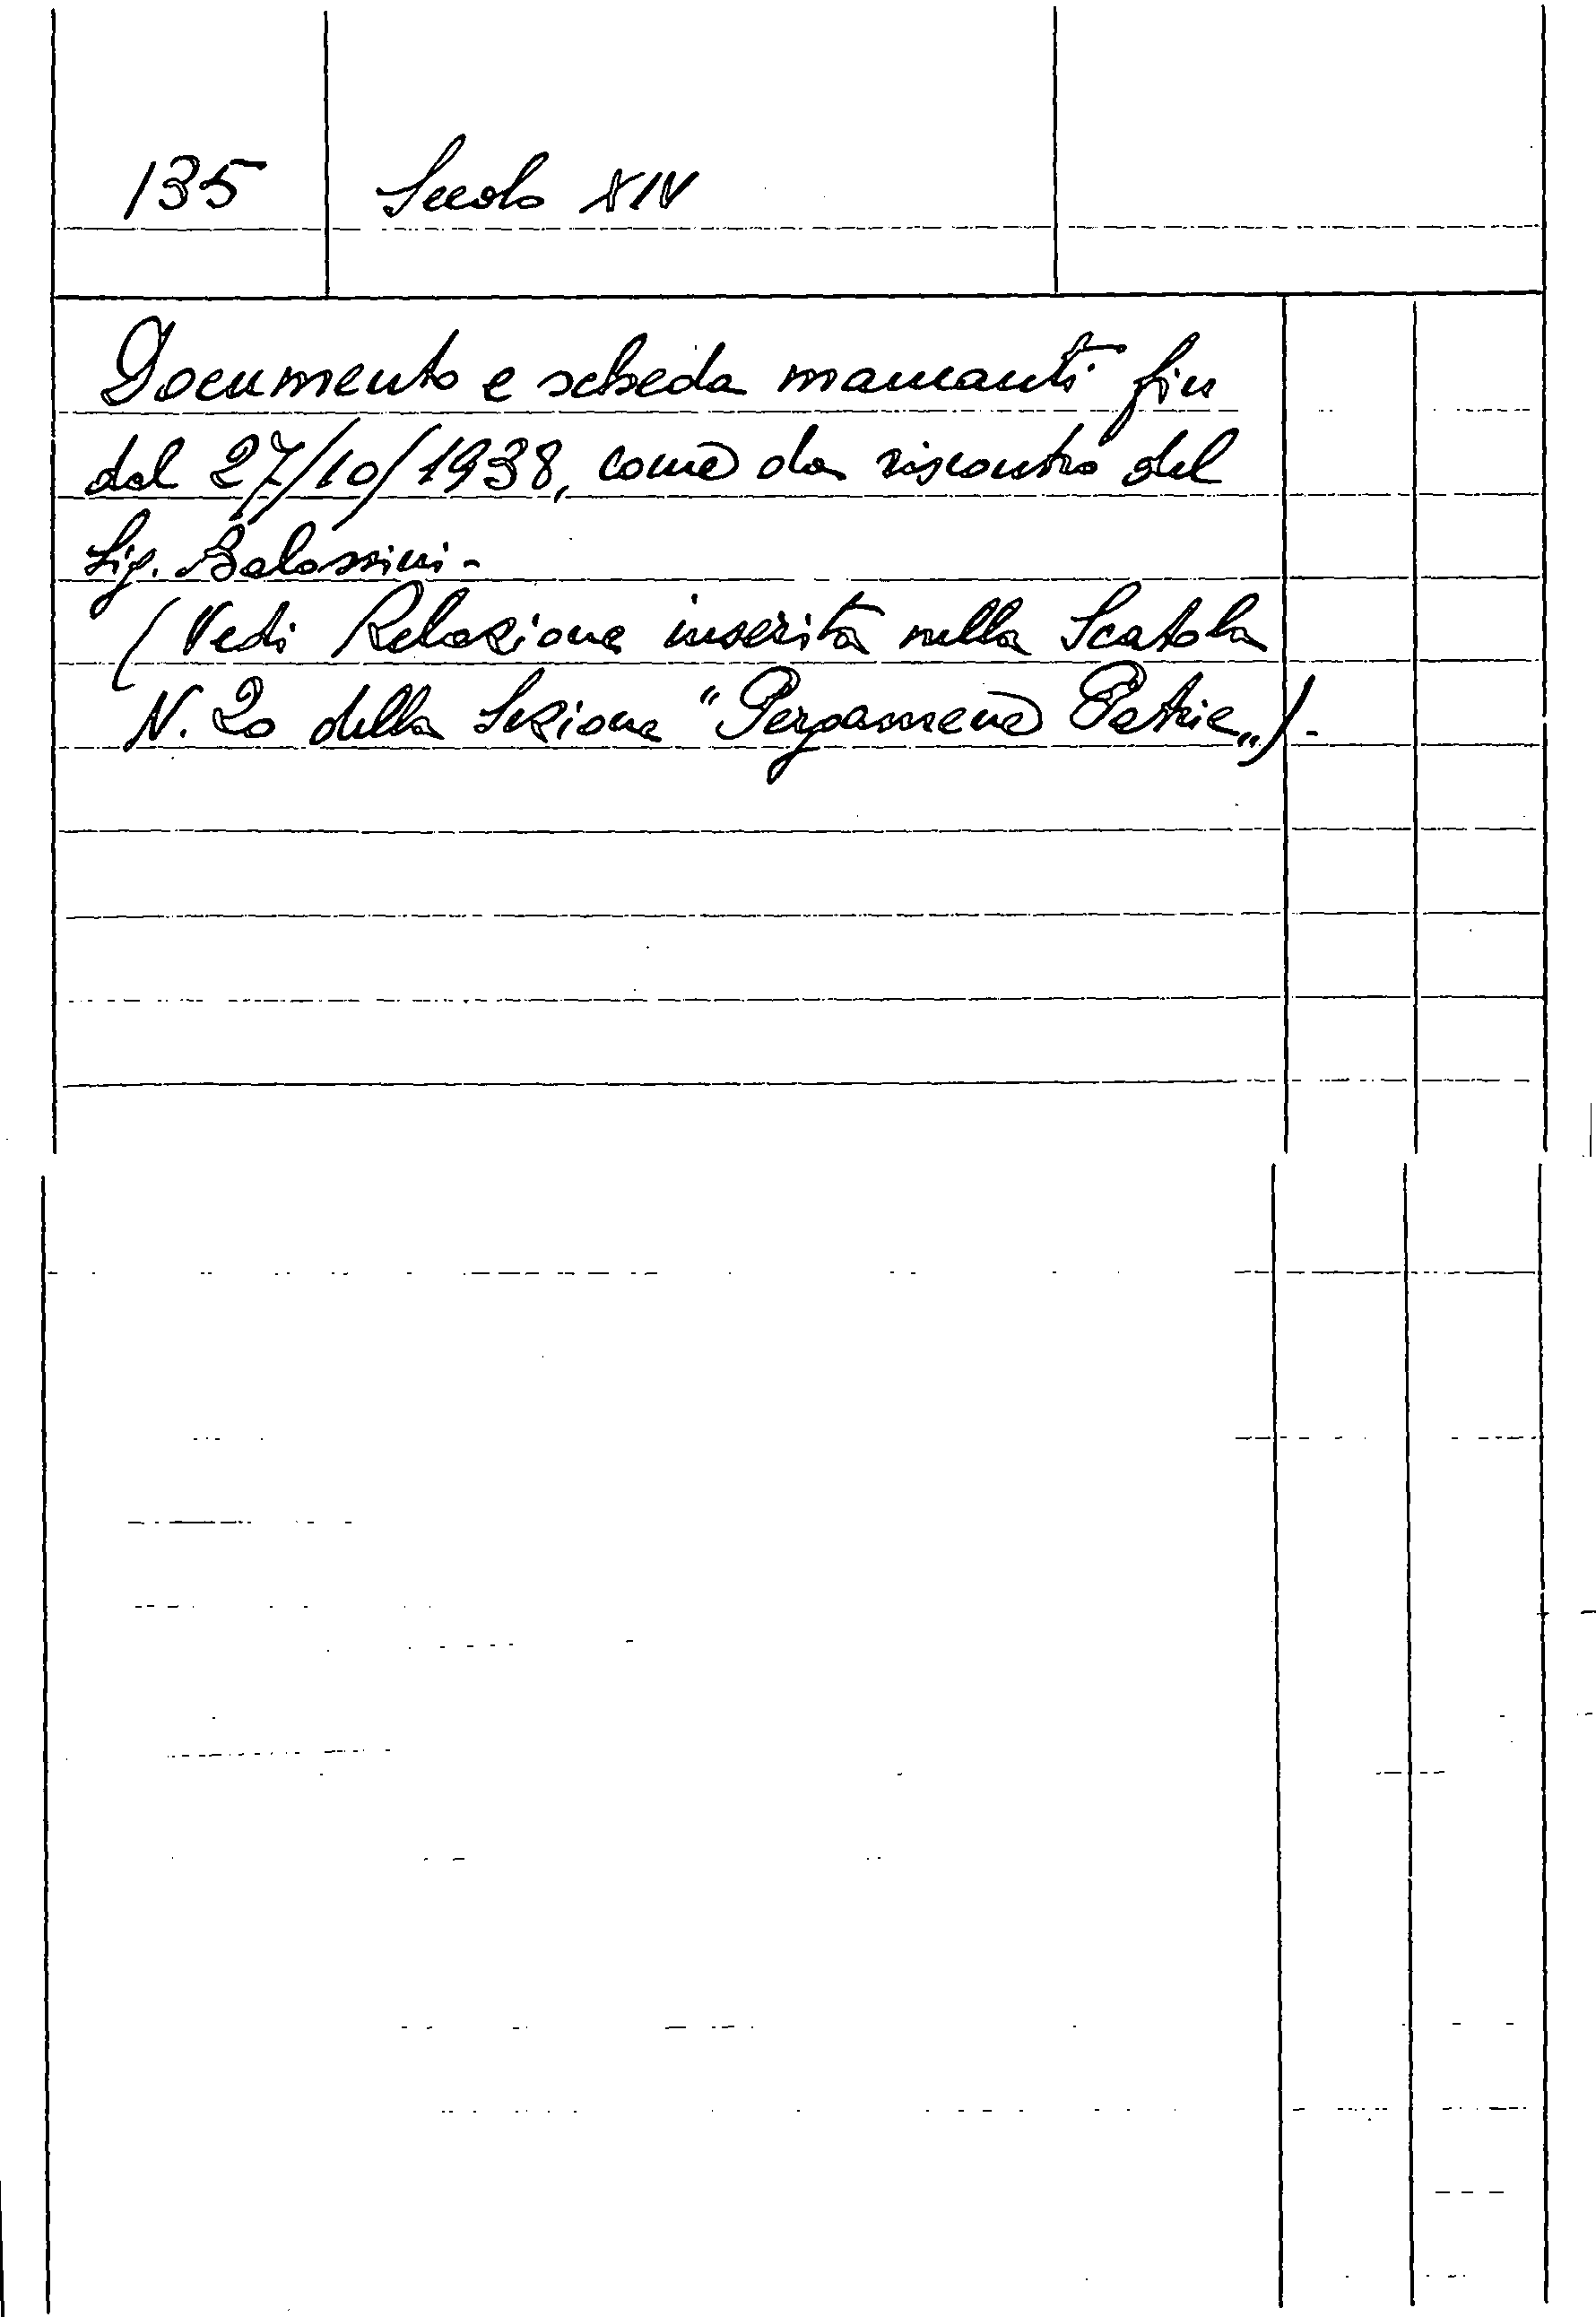 135 Secolo XIV
Documento e scheda mancanti fin
dal 27/10/1938, come da riscontro del
Sig. Balossini -
(Vedi Relazione inserita nella Scatola
N. 20 della Sezione "Pergamene Patrie„) -